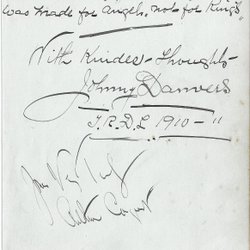 was made for angels, not for Kings.
With Kindest Thoughts
Johnny Danvers
T.R.D.L 1910-11